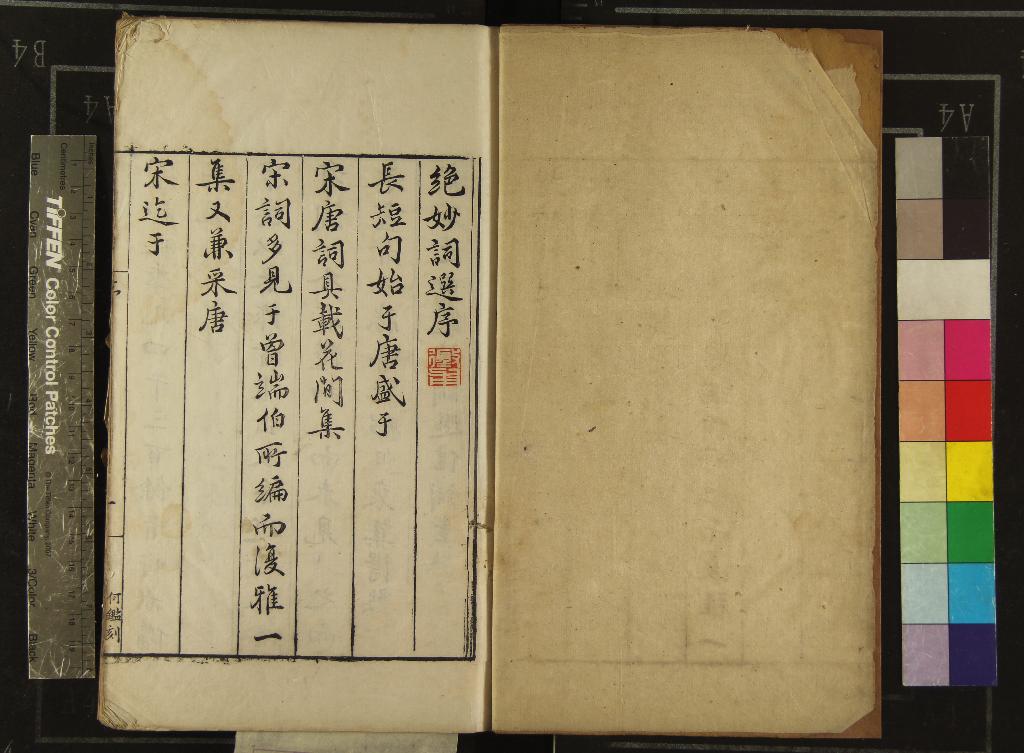 絶妙詞選序
長短句始于唐盛于
宋唐詞具載花間集
宋詞多見于曾端伯所編而復雅一
集又兼采唐
宋迄于
何鑑刻
TIFFEN Color Control Patches
© The Tiffen Company, 2007
Centimetres
Inches
Blue
Cyan
Green
Yellow
Red
Magenta
White
3/Color
Black
B4
A4
A4